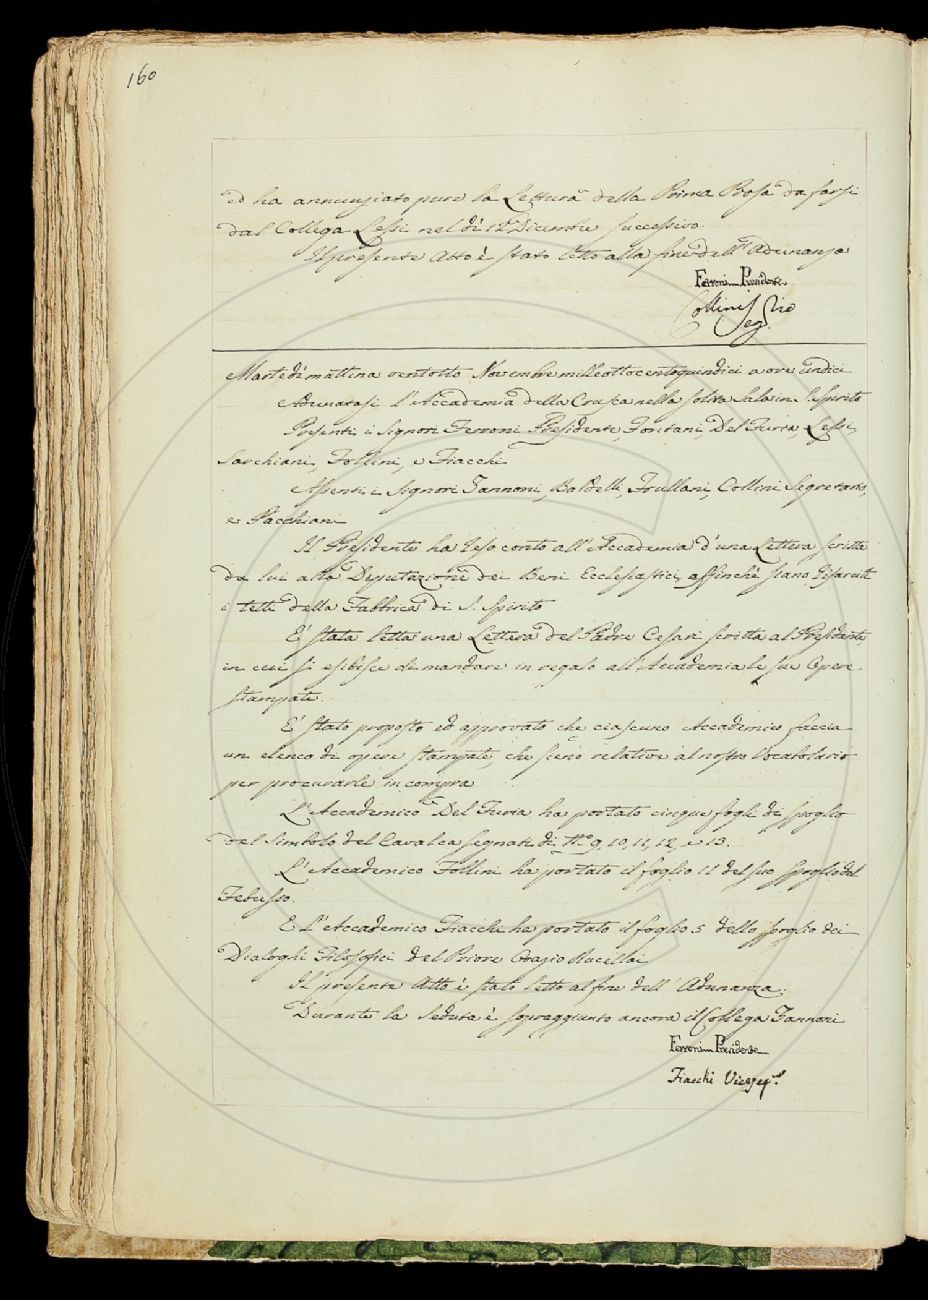 160
ed ha annunziato pure la Lettura della Prima Prosa da farsi
dal Collega Lessi nel dì 12 Dicembre successivo.
Il presente Atto è stato letto alla fine dell'Adunanza
Ferroni Presidente
Collini Seg.rio
Martedì mattina ventotto Novembre milleottocentoquindici a ore undici
Adunatasi l'Accademia della Crusca nella solita Sala in S. Spirito
Presenti i Signori Ferroni Presidente, Fontani, Del Furia, Lessi,
Sarchiani, Follini, e Fiacchi
Assenti i Signori Zannoni, Baldelli, Frullani, Collini Segretario,
e Pacchiani
Il Presidente ha reso conto all'Accademia d'una Lettera scritta
da lui alla Deputazione dei Beni Ecclesiastici, affinchè siano risarciti
i tetti della Fabbrica di S. Spirito
E' stata letta una Lettera del Padre Cesari scritta al Presidente,
in cui si esibisce di mandare in regalo all'Accademia le sue Opere
stampate.
E' stato proposto ed approvato che ciascuno Accademico faccia
un elenco di opere stampate, che sieno relative al nostro Vocabolario
per procurarle in compra
L'Accademico Del Furia ha portato cinque fogli di spoglio
del Simbolo del Cavalca segnati di N.o 9, 10, 11, 12, e 13.
L'Accademico Follini ha portato il foglio 11 del suo spoglio del
Febusso.
E l'Accademico Fiacchi ha portato il foglio 5 dello spoglio dei
Dialoghi Filosofici del Priore Orazio Rucellai
Il presente Atto è stato letto al fine dell'Adunanza.
Durante la Seduta è sopraggiunto ancora il Collega Zannoni
Ferroni Presidente
Fiacchi Vicesegr.